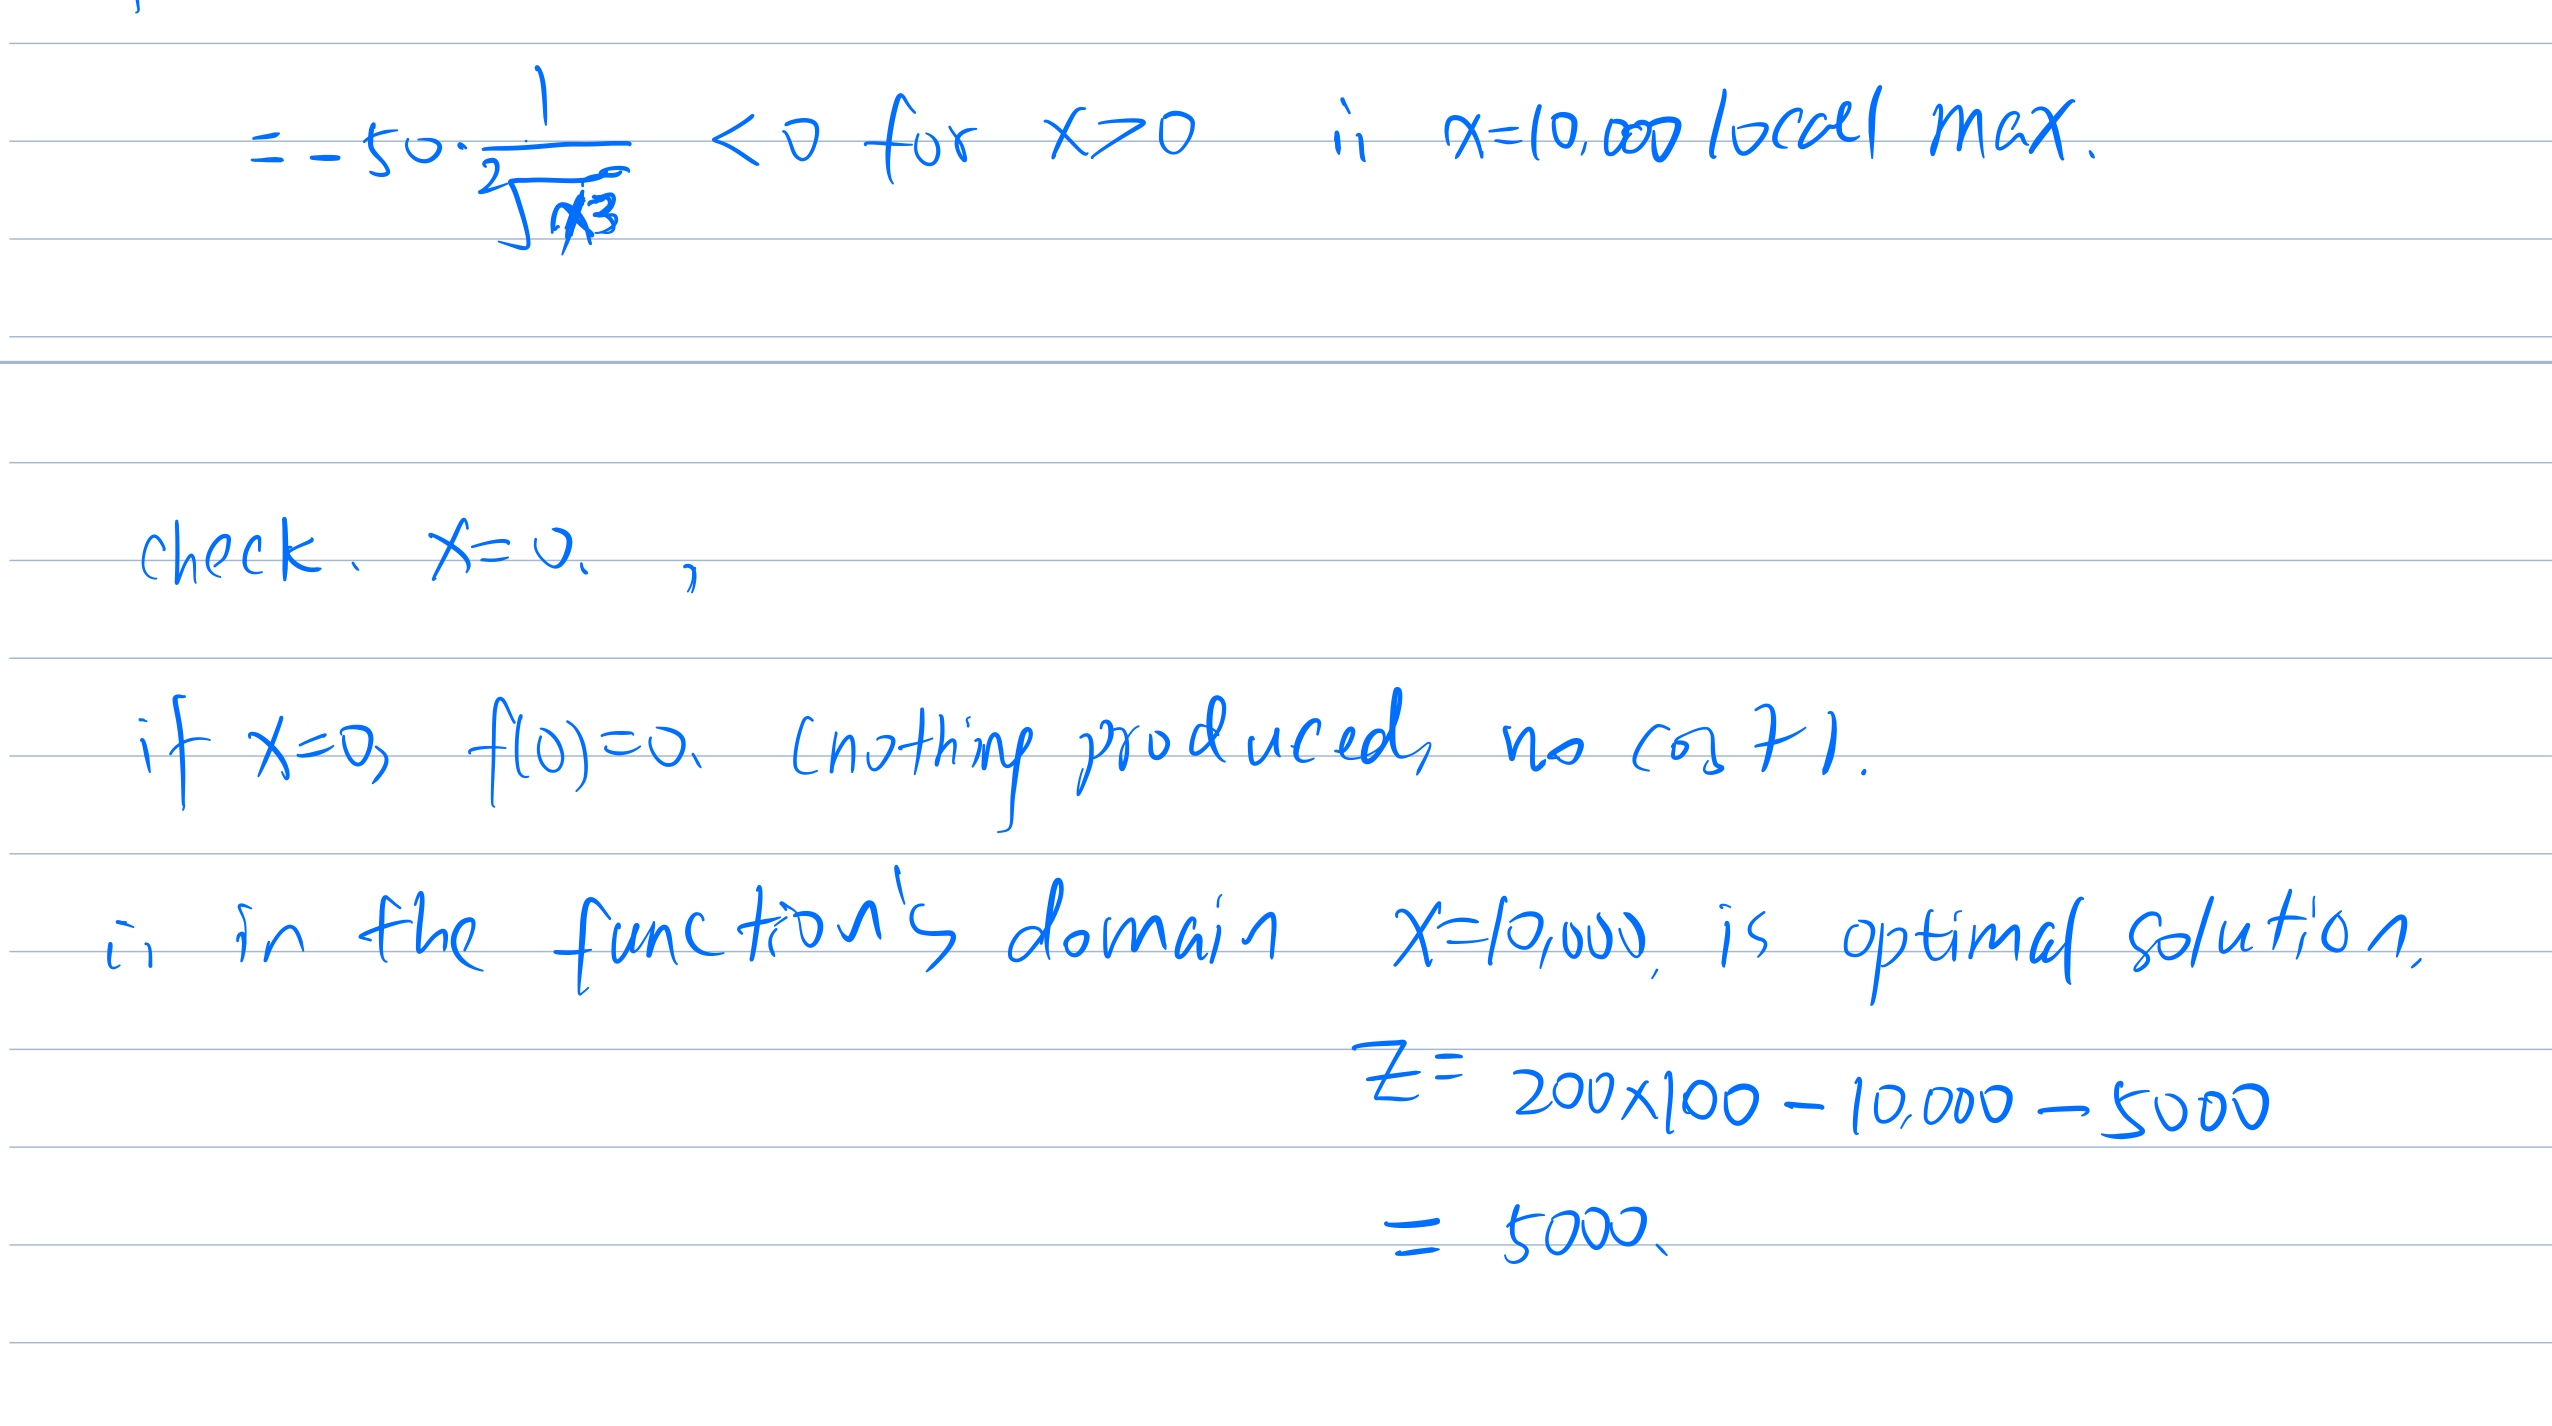 = -50 · 1/²√x³ < 0 for x>0 ∴ x=10,000 local max.
check. x=0. ,
if x=0, f(0)=0. (nothing produced, no cost).
∴ in the function's domain x=10,000, is optimal solution.
Z= 200x100 - 10,000 - 5000
= 5000.